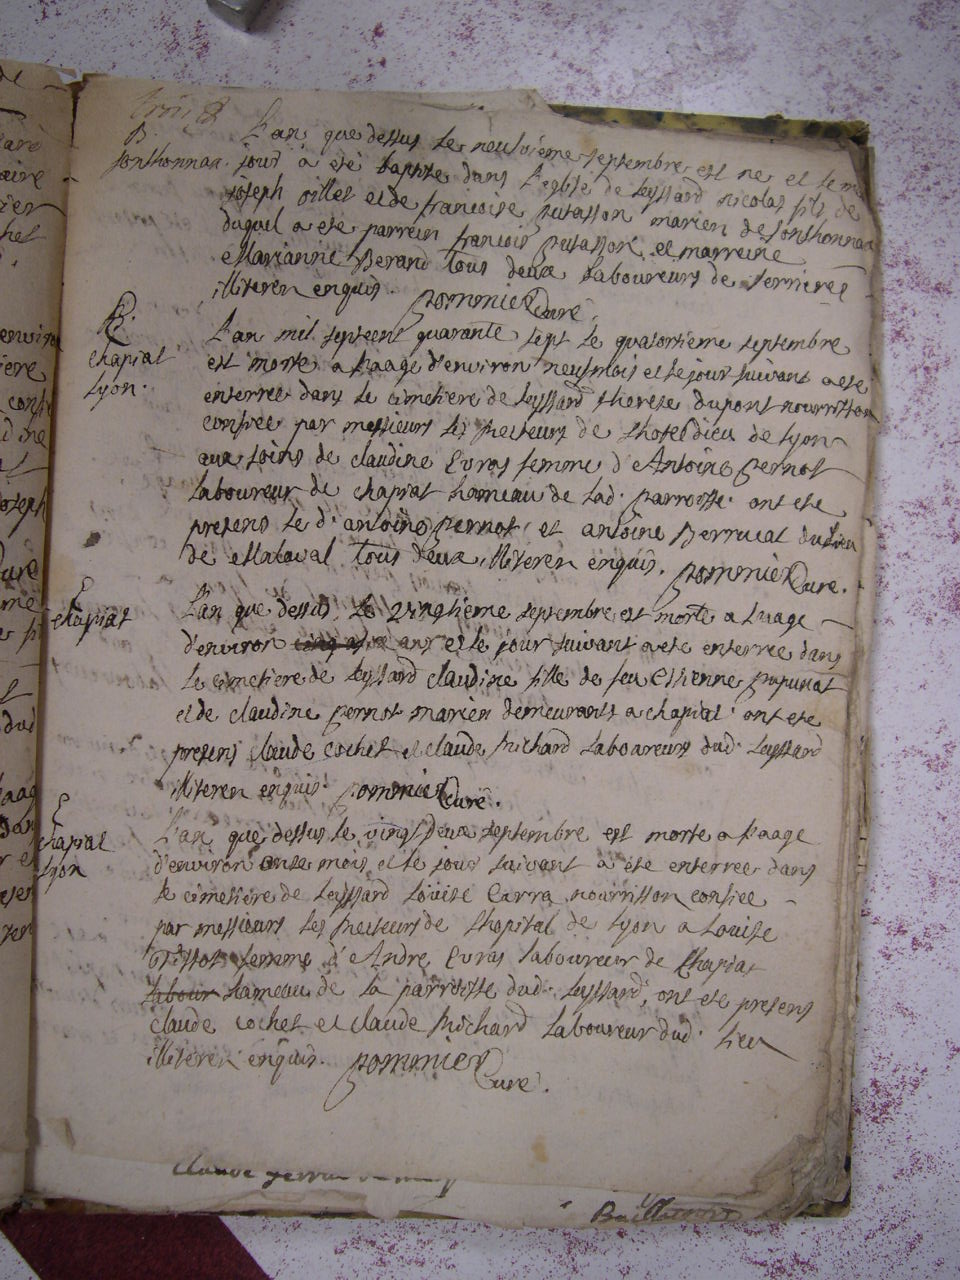 B.
Sonthonnax.
L'an que dessus le neufvième septembre est ne et le même
jour a été baptize dans l'eglise de Leyssard nicolas fils de
joseph oillet et de francoise putasson mariéz de Sonthonnax
duquel a été parrein francois putasson et marreine
Marianne Berand tous deux laboureurs de Serrieres
illiteréz enquis. pommier Curé.
chapiat
Lyon.
L'an mil septcent quarante sept le quatortieme septembre
est morte a l'aage d'environ neuf mois et le jour suivant a été
enterree dans le cimetiere de Leyssard therese dupont nourrisson
confiée par messieurs les recteurs de l'hotel dieu de Lyon
aux soins de claudine Evras femme d'Antoine pernot
laboureur de chapiat hameau de lad. parroisse. ont été
presens le d. antoine pernot et antoine Berrucat du lieu
de Malaval tous deux illiteréz enquis. pommier Curé.
chapiat
L'an que dessus le vingtieme septembre est morte a l'aage
d'environ ans et le jour suivant a été enterrée dans
le cimetiere de Leyssard claudine fille de feu Etienne pupunat
et de claudine pernot mariéz demeurants a chapiat. ont été
presens claude cochet et claude Michard laboureurs dud. Leyssard
illiteréz enquis. pommier Curé.
chapiat
Lyon
L'an que dessus le vingt deux septembre est morte a l'aage
d'environ onze mois et le jour suivant a été enterrée dans
le cimetiere de Leyssard Louise Carra nourrisson confiée
par messieurs les recteurs de l'hopital de Lyon a Louise
Tissot femme d'André Evras laboureur de Chapiat
labour hameau de la parroisse dud. Leyssard, ont été presens
claude cochet et claude Michard laboureur dud. lieu
illiteréz enquis. pommier
Curé.
claude